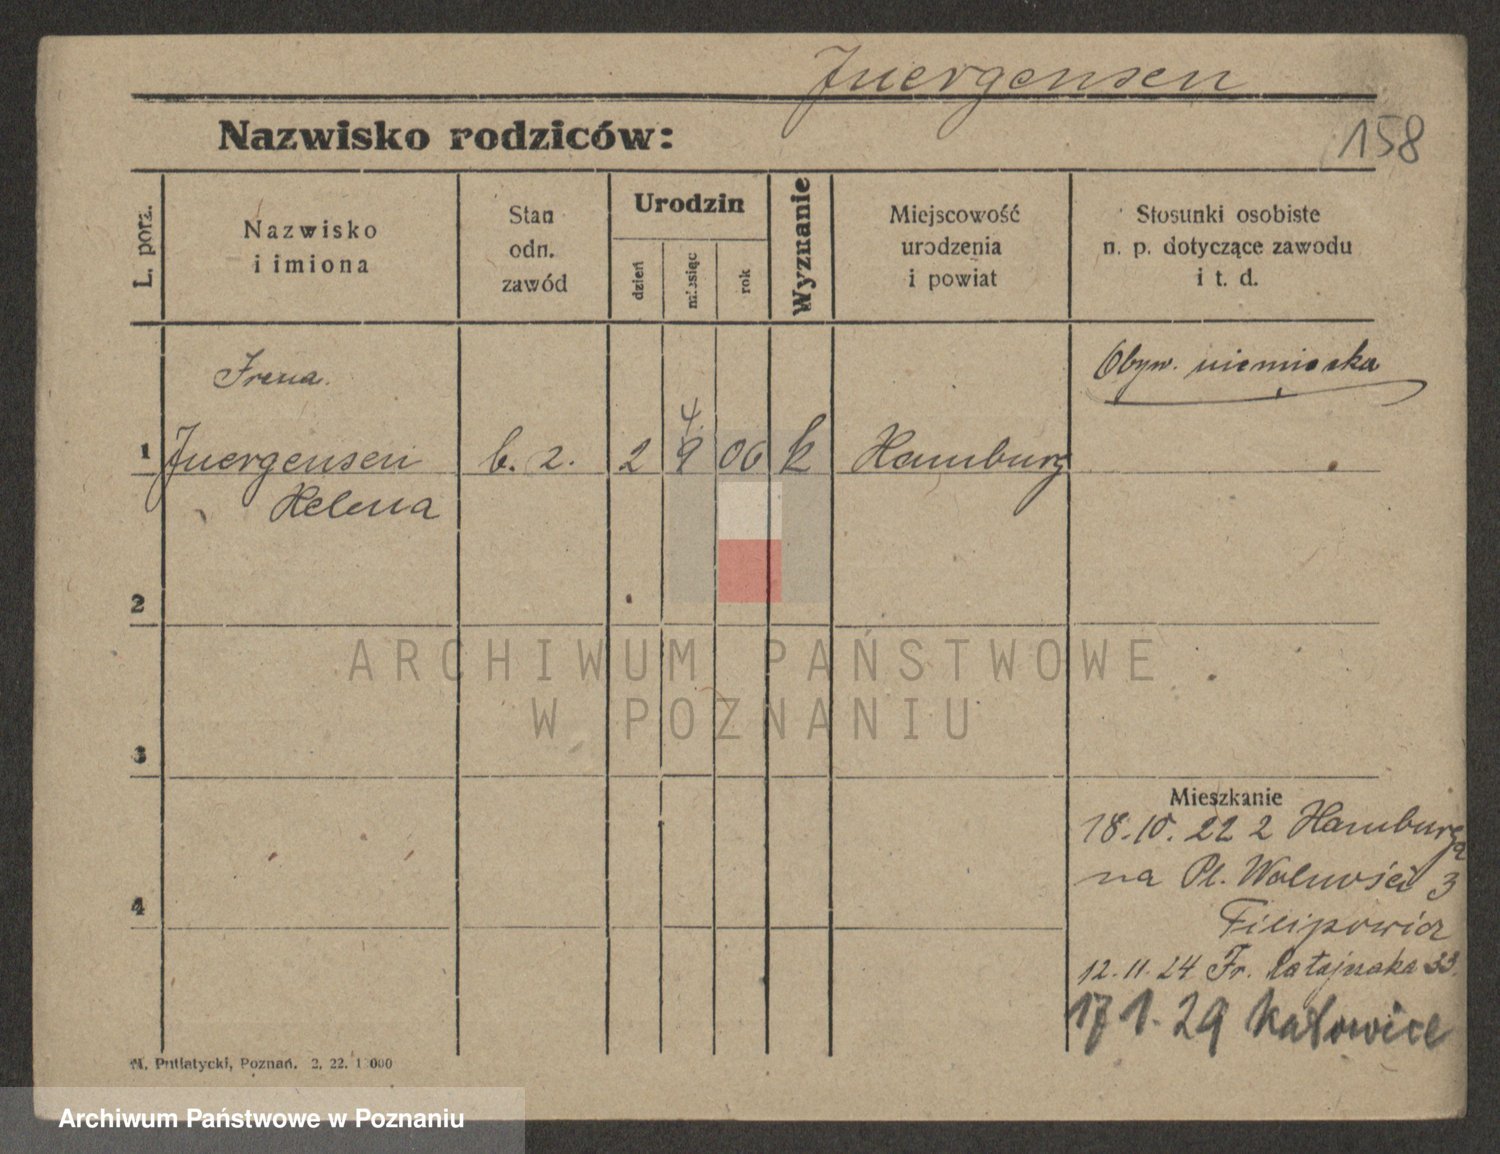 Juergensen
Nazwisko rodziców:
158
L. porz.
Nazwisko
i imiona
Stan
odn.
zawód
Urodzin
dzień
miesiąc
rok
Wyznanie
Miejscowość
urodzenia
i powiat
Stosunki osobiste
n. p. dotyczące zawodu
i t. d.
Irena.
Obyw. niemiecka
4.
1 Juergensen b. z. 2 9 06 k Hamburg
Helena
2
3
4
Mieszkanie
18.10.22 z Hamburga
na Pl. Wolności 3
Filipowicz
12.11.24 Fr. Ratajczaka 33.
17 1. 29 Katowice
M. Putiatycki, Poznań. 2. 22. 1 000
ARCHIWUM PAŃSTWOWE
W POZNANIU
Archiwum Państwowe w Poznaniu